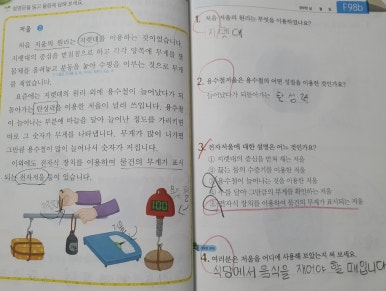 저울
처음 저울의 원리는 지렛대를 이용하는 것이었습니다.
지렛대의 중심을 받침점으로 하고 각각 양쪽에 무게를 잴
물체를 올려놓고 분동을 놓아 수평을 이루는 것으로 무게
를 재었습니다.
요즘에는 지렛대의 원리 외에 용수철이 늘어났다가 되
돌아가는 탄성력을 이용한 저울이 널리 쓰입니다. 용수철
이 늘어나는 부분에 바늘을 달아 늘어난 정도를 가리키면
바로 그 숫자가 무게를 나타냅니다. 무게가 많이 나가면
그만큼 용수철이 많이 늘어나서 숫자가 커집니다.
이외에도 전자식 장치를 이용하여 물건의 무게가 표시
되는 전자저울 등이 있습니다.
100
F98b
1. 처음 저울의 원리는 무엇을 이용하였나요?
지렛대
2. 용수철저울은 용수철의 어떤 성질을 이용한 것인가요?
늘어났다가 되돌아가는 탄성력
3. 전자저울에 대한 설명은 어느 것인가요?
① 지렛대의 중심을 받쳐 재는 저울
③ 용수철이 늘어나는 것을 이용한 저울
⑤ 전자식 장치를 이용하여 물건의 무게가 표시되는 저울
4. 여러분은 저울을 어디에 사용해 보았는지 써 보세요.
식당에서 음식을 재어야 할 때입니다